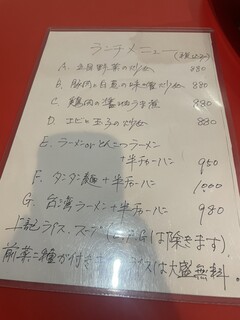 ランチメニュー (税込み)
A. 五目野菜の炒め 880
B. 豚肉と白菜の味噌炒め 880
C. 鶏肉の醤油うま煮 880
D. エビと玉子の炒め 880
E. ラーメンorとんこつラーメン
+半チャーハン 950
F. タンタン麺+半チャーハン 1,000
G. 台湾ラーメン+半チャーハン 980
上記ライス、スープ(E,F,Gは除きます)
前菜二種が付きます ライスは大盛無料。